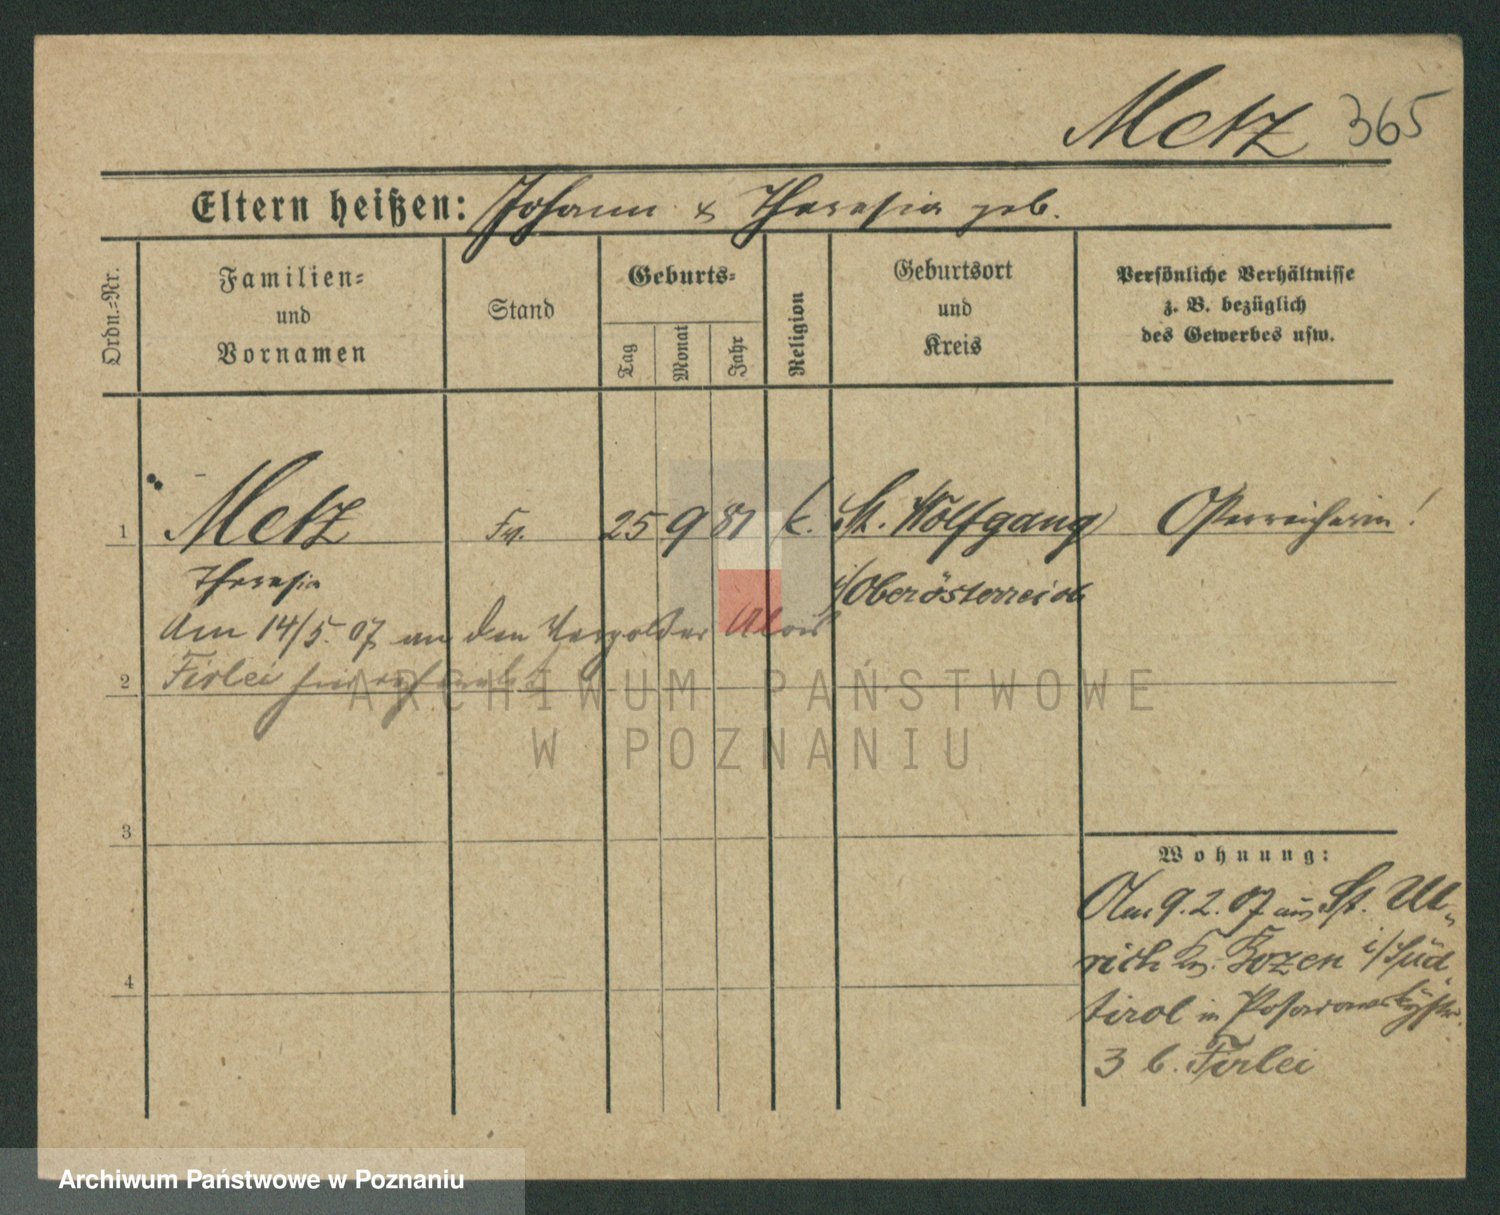 Metz 365
Eltern heißen: Johann & Theresia geb.
Ordn.-Nr.
Familien-
und
Vornamen
Stand
Geburts-
Tag
Monat
Jahr
Religion
Geburtsort
und
Kreis
Persönliche Verhältnisse
z. B. bezüglich
des Gewerbes usw.
1 Metz Fr. 25 9 81 k. St. Wolfgang Österreicherin!
Theresia i/Oberösterreich
Am 14/5. 07 an den Vergolder Alois
2 Firlei
3
4
Wohnung:
Am 9.2.07 aus St. Ul-
rich Kr. Bozen i/Süd-
tirol in
3 b. Firlei
ARCHIWUM PAŃSTWOWE
W POZNANIU
Archiwum Państwowe w Poznaniu